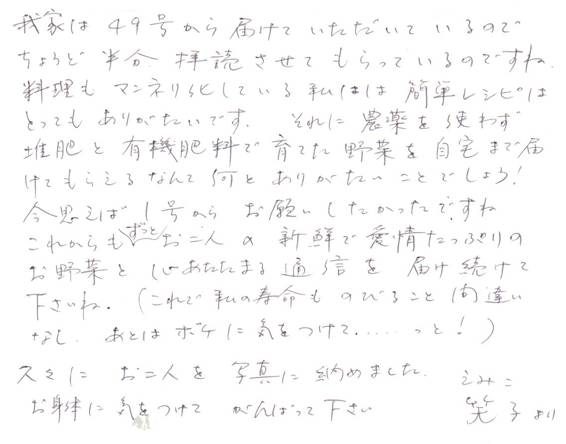 我家は49号から届けていただいているので
ちょうど半分拝読させてもらっているのですね
料理もマンネリ化している私には簡単レシピは
とってもありがたいです。それに農薬を使わず
堆肥と有機肥料で育てた野菜を自宅まで届
けてもらえるなんて何とありがたいことでしょう!
今思えば1号からお願いしたかったですね
これからもずっとお二人の新鮮で愛情たっぷりの
お野菜と心あたたまる通信を届け続けて
下さいね.(これで私の寿命ものびること間違い
なし.あとはボケに気をつけて.....っと!)
久々にお二人を写真に納めました.
お身体に気をつけてがんばって下さい
えみこ
笑子より